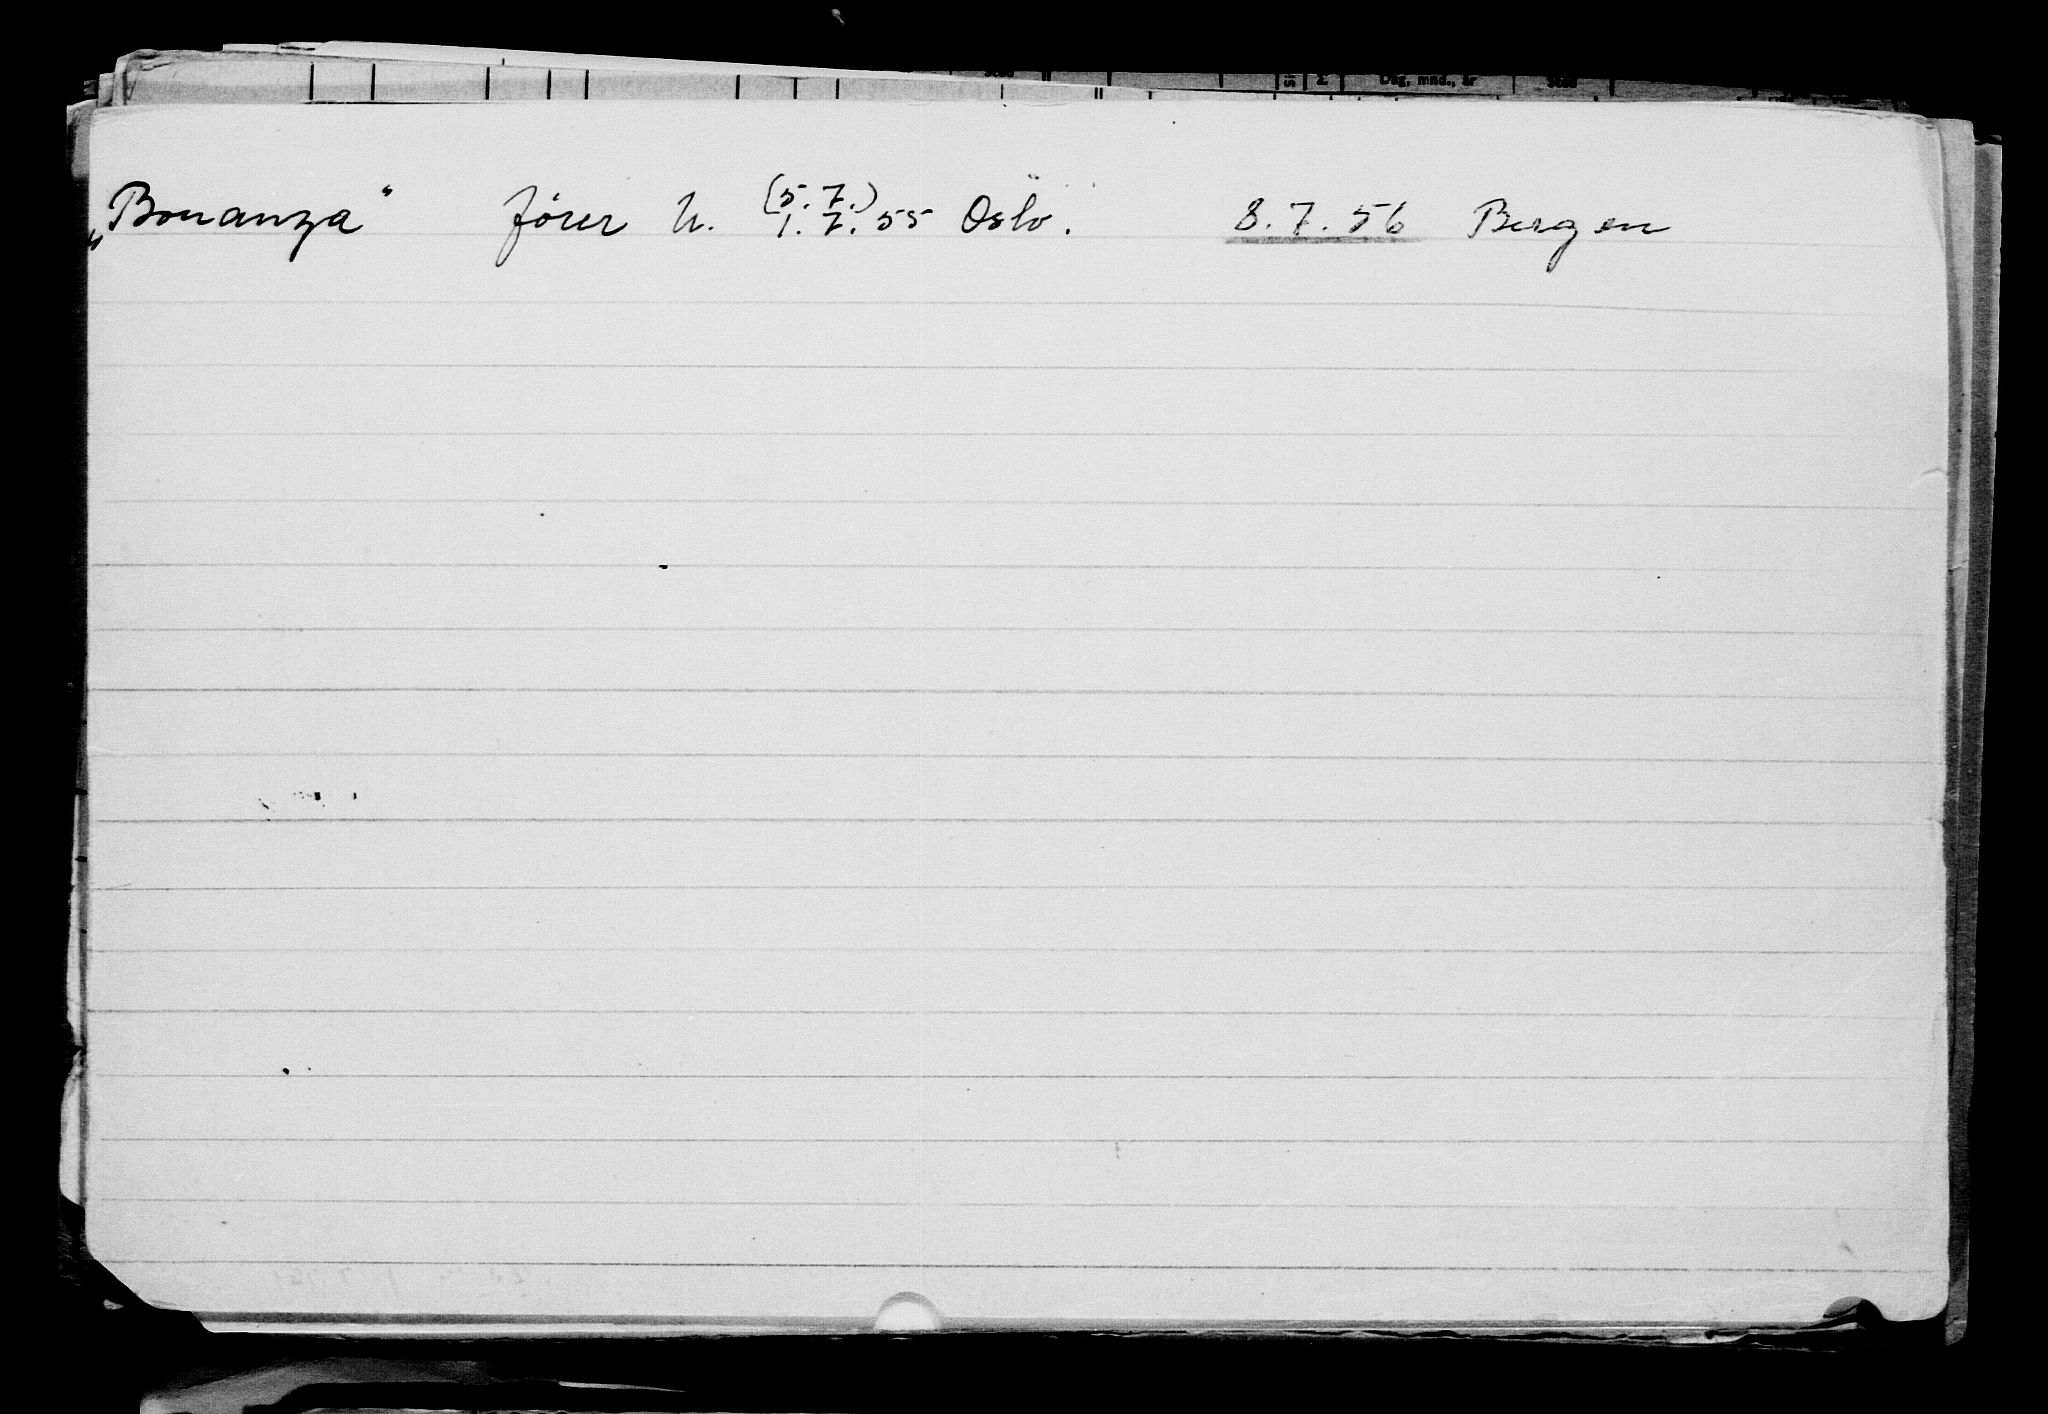 „Bonanza“ fører h. (5. 7.) 1. 7. 55 Oslo. 8. 7. 56 Bergen
Dag, mnd., år